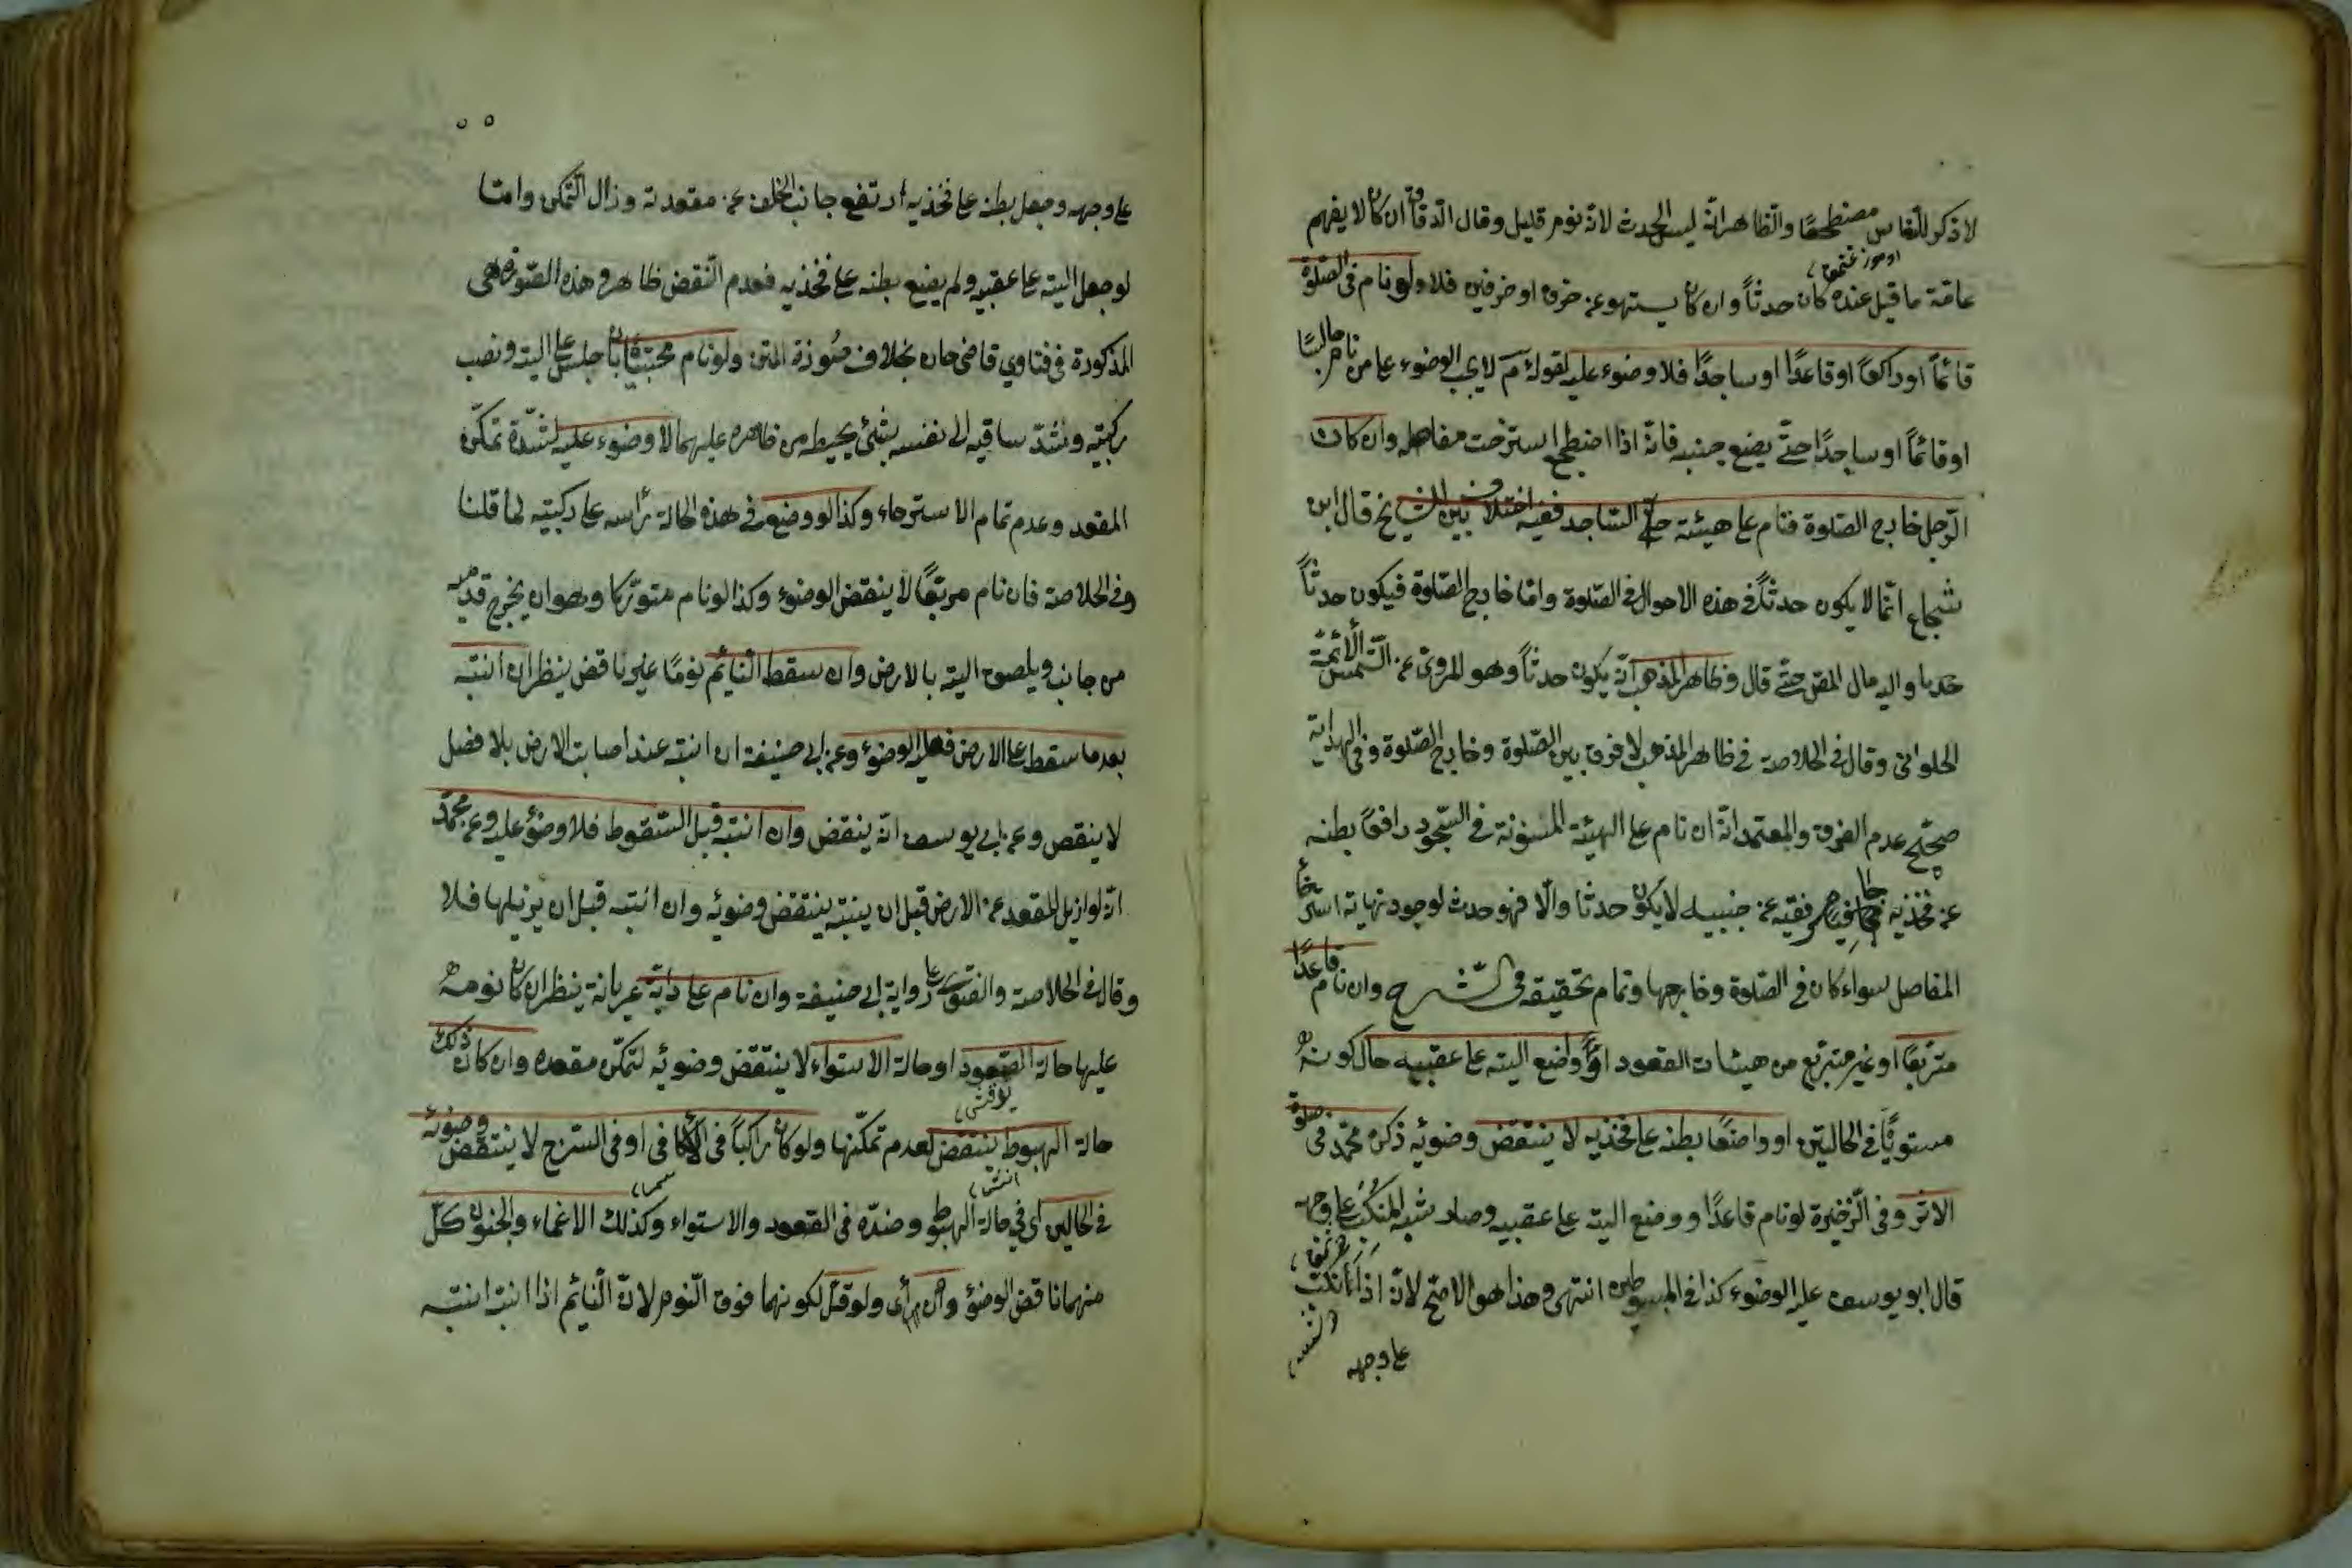 لا ذكر للنعاس مضطجعًا والظاهر انه ليس بحدث لانه نوم قليل وقال الدقاق ان كان لا يفهم
عامة ما قيل عنده كان حدثاً وان كان يسهو عن حرف او حرفين فلا ولو نام فى الصلوة
قائمًا او راكعًا او قاعدًا او ساجدًا فلا وضوء عليه لقوله عم لا يجب الوضوء على من نام جالسًا
او قائمًا او ساجدًا حتّى يضع جنبه فانّه اذا اضطجع استرخت مفاصله وان كان
الرّجل خارج الصّلوة فنام على هيئة السّاجد ففيه اختلاف بين المشايخ قال ابن
شجاع انّما لا يكون حدثًا فى هذه الاحوال فى الصّلوة وامّا خارج الصّلوة فيكون حدثاً
والیه مال المص حتّى قال وظاهر المذهب انّه يكون حدثاً وهو المروىّ عن الشّمس الأئمّة
الحلوانى وقال فى الخلاصة فى ظاهر المذهب لا فرق بين الصّلوة وخارج الصّلوة وفى الهداية
صحّح عدم الفرق والمعتمد انّه ان نام على الهيئة المسنونة فى السّجود رافعًا بطنه
عن فخذيه مجافيا مرفقيه عن جنبيه لا يكون حدثا والّا فهو حدث لوجود نهاية استرخاء
المفاصل سواء كان فى الصّلوة وخارجها وتمام تحقيقه فى الشّرح وان نام قاعدًا
متربّعًا او غير متربّع من هيئات القعود او واضع اليته على عقبيه حال كونه
مستويًا فى الحالتين او واضعًا بطنه على فخذيه لا ينتقض وضوئه ذكره محمّد فى صلوة
الاثر وفى الذّخيرة لو نام قاعدًا ووضع اليته على عقبيه وصار شبه المنكبّ على وجهه
قال ابو يوسف عليه الوضوء كذا فى المبسوطين انتهى وهذا هو الاصحّ لانّه اذا انكبّ
على وجهه
على وجهه وجعل بطنه على فخذيه ارتفع جانب الخلف عن مقعدته وزال التّمكن وامّا
لو جعل اليته على عقبيه ولم يضع بطنه على فخذيه فعدم النّقض ظاهر وهذه الصّورة هى
المذكورة فى فتاوي قاضى خان بخلاف صورة المتن ولو نام محتبيًا بان جلس على اليته ونصب
ركبتيه وشدّ ساقيه الى نفسه بشئ يحيط من ظهره عليهما لا وضوء عليه لشدّة تمكّن
المقعد وعدم تمام الاسترخاء وكذا لو وضع فى هذه الحالة رأسه على ركبتيه لما قلنا
وفى الخلاصة فان نام مربّعًا لا ينقض الوضوء وكذا لو نام متورّكا وهو ان يخرج قدميه
من جانب ويلصق اليته بالارض وان سقط النّائم نومًا غير ناقض ينظر ان انتبه
بعد ما سقط على الارض فعليه الوضوء وعن ابى حنيفة ان انتبه عند اصابت الارض بلا فصل
لا ينقض وعن ابى يوسف انّه ينقض وان انتبه قبل السّقوط فلا وضوء عليه وعن محمّد
انّه لو ازيل المقعد عن الارض قبل ان ينتبه ينتقض وضوئه وان انتبه قبل ان يزيلها فلا
وقال فى الخلاصة والفتوى على رواية ابى حنيفة وان نام على دابّة عريانة ينظر ان كان نومه
عليها حالة الصّعود او حالة الاستواء لا ينتقض وضوئه لتمكّن مقعده وان كان ذلك
حالة الهبوط ينتقض لعدم تمكّنها ولو كان راكباً فى الاكاف او فى السّرج لا ينتقض وضوئه
فى الحالين اى فى حالة الهبوط وضدّه فى القعود والاستواء وكذلك الاغماء والجنون كلّ
منهما ناقض الوضوء وان قلّ لكونهما فوق النّوم لانّ النّائم اذا انتبه انتبه